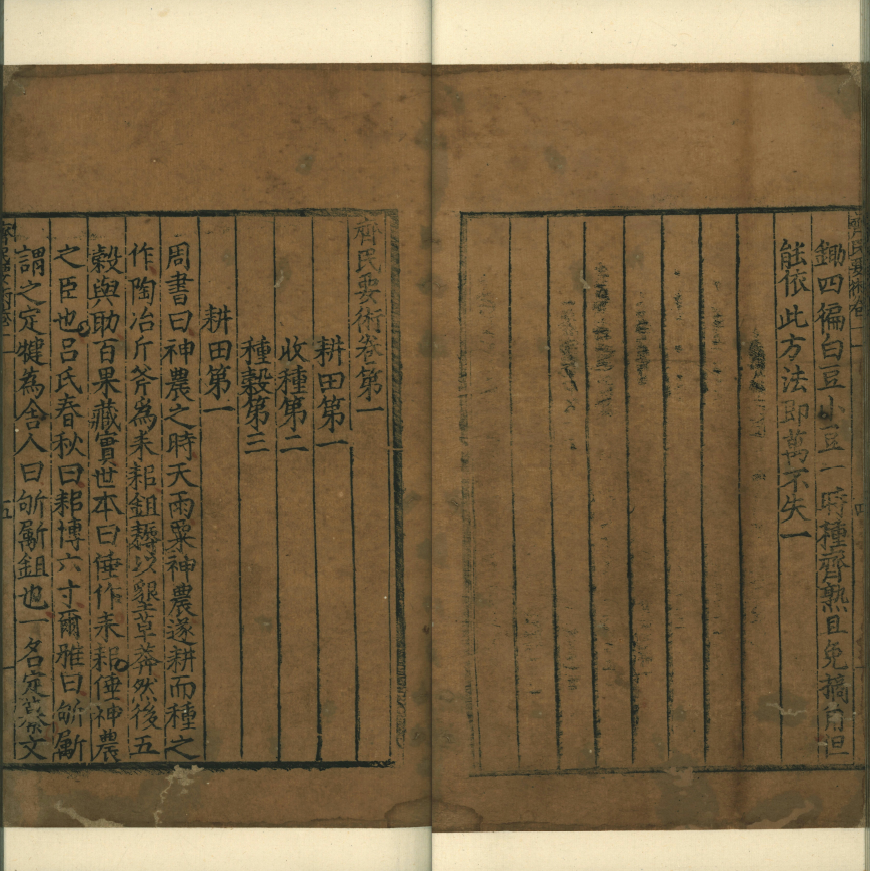 齊民要術卷一
鋤四徧白豆小豆一時種齊熟且免摘角但
能依此方法即萬不失一
齊民要術卷第一
耕田第一
收種第二
種榖第三
耕田第一
周書曰神農之時天雨粟神農遂耕而種之
作陶冶斤斧爲耒耜鉏耨以墾草莽然後五
穀與助百果藏實世本曰倕作耒耜倕神農
之臣也呂氏春秋曰耜博六寸爾雅曰斪斸
謂之定犍爲舍人曰斪斸鉏也一名定纂文
齊民要術卷一
五